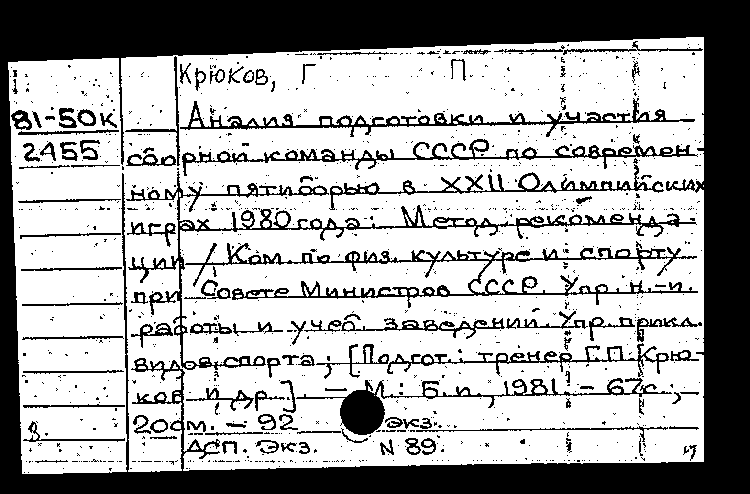 Крюков, Г П
81-50к Анализ подготовки и участия
2455 сборной команды СССР по современ-
ному пятиборью в XXII Олимпийских
играх 1980 года: Метод. рекоменда-
ции / Ком. по физ. культуре и спорту
при Совете Министров СССР. Упр. н.-и.
работы и учеб. заведений. Упр. прикл.
видов спорта; [Подгот.: тренер Г.П. Крю-
ков и др.]. — М.: Б.и., 1981. - 67с.;
8. 20см. - 92 экз.
ДСП. Экз. N 89.